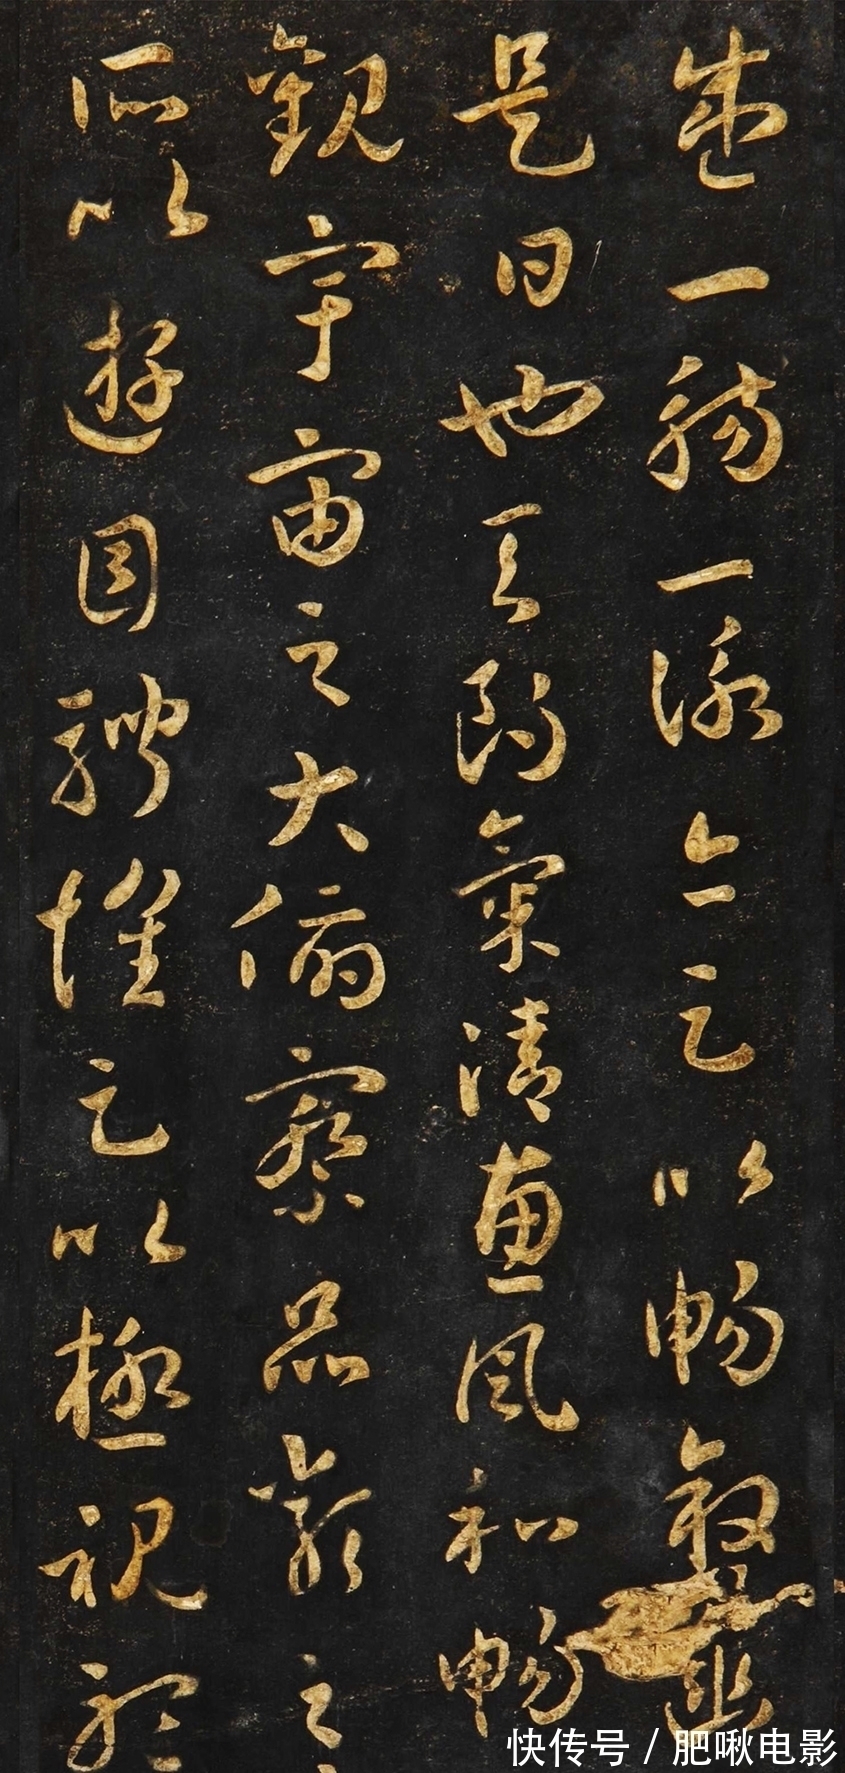 盛一觴一詠亦足以暢叙幽
是日也天朗氣清惠風和暢
觀宇宙之大俯察品類之
所以遊目騁懷足以極視聽
快传号 / 肥啾电影